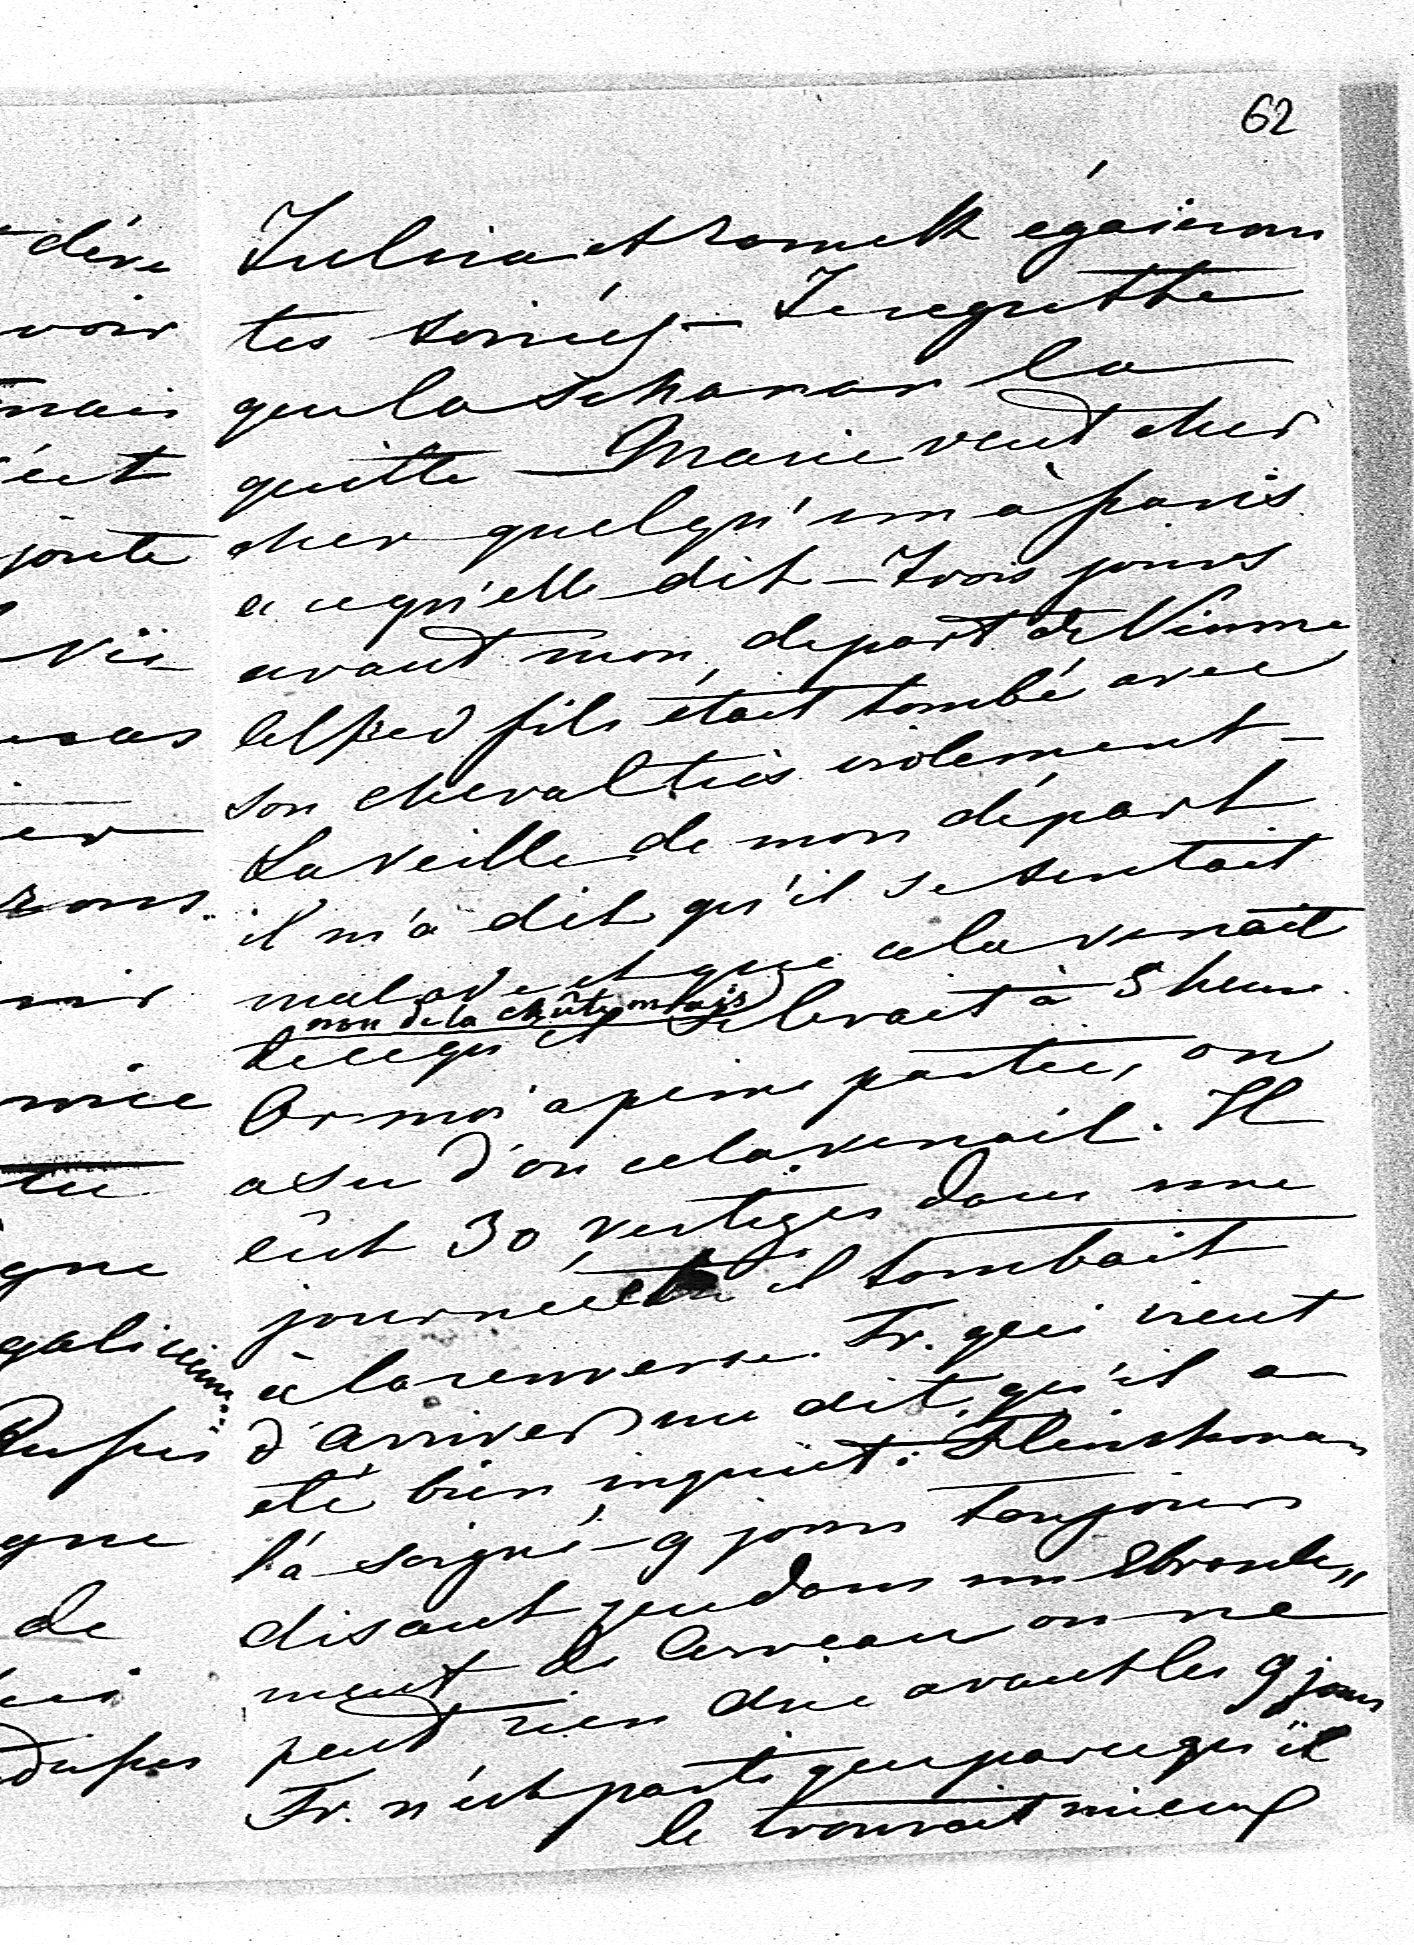 62
Julia et égaieront
tes soirées – Je regrette
que la la
quitte – Marie veut cher
cher quelqu'un à paris
a ce qu'elle dit – Trois jours
avant mon départ de Vienne
Alfred fils était tombé avec
son cheval très violement –
La veille de mon départ
il m'a dit qu'il se sentait
malade et que cela venait
non de la chûte mais
de ce qu'il se levait à 5 heure
Or moi a peine partie, on
a su d'ou cela venait. Il
eût 30 vertiges dans une
journée et il tombait
à la renverse. Fr. qui vient
d'arriver me dit, qu'il a
été bien inquiet:
l'a soigné – 9 jours toujours
disant que dans un Ebranle„
ment de Cerveau on ne
peut rien dire avant les 9 jours
Fr. n'est parti que parcequ'il
le trouvait mieux
voir
mais
joute
mie
gne
gne
de